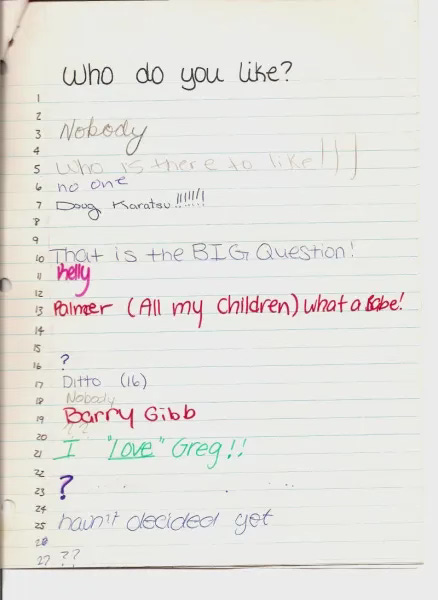 Who do you like?
1
2
3 Nobody
5 Who is there to like!)))
6 no one
7 Doug Karatsu!!!!!!!
8
9
10 That is the BIG Question!
11 Kelly
12
13 Palmer (All my Children) what a Babe!
14
15
16 ?
17 Ditto (16)
18 Nobody
19 Barry Gibb
20 ??
21 I "Love" Greg!!
22
23 ?
24
25 havn't decided yet
26
27 ??